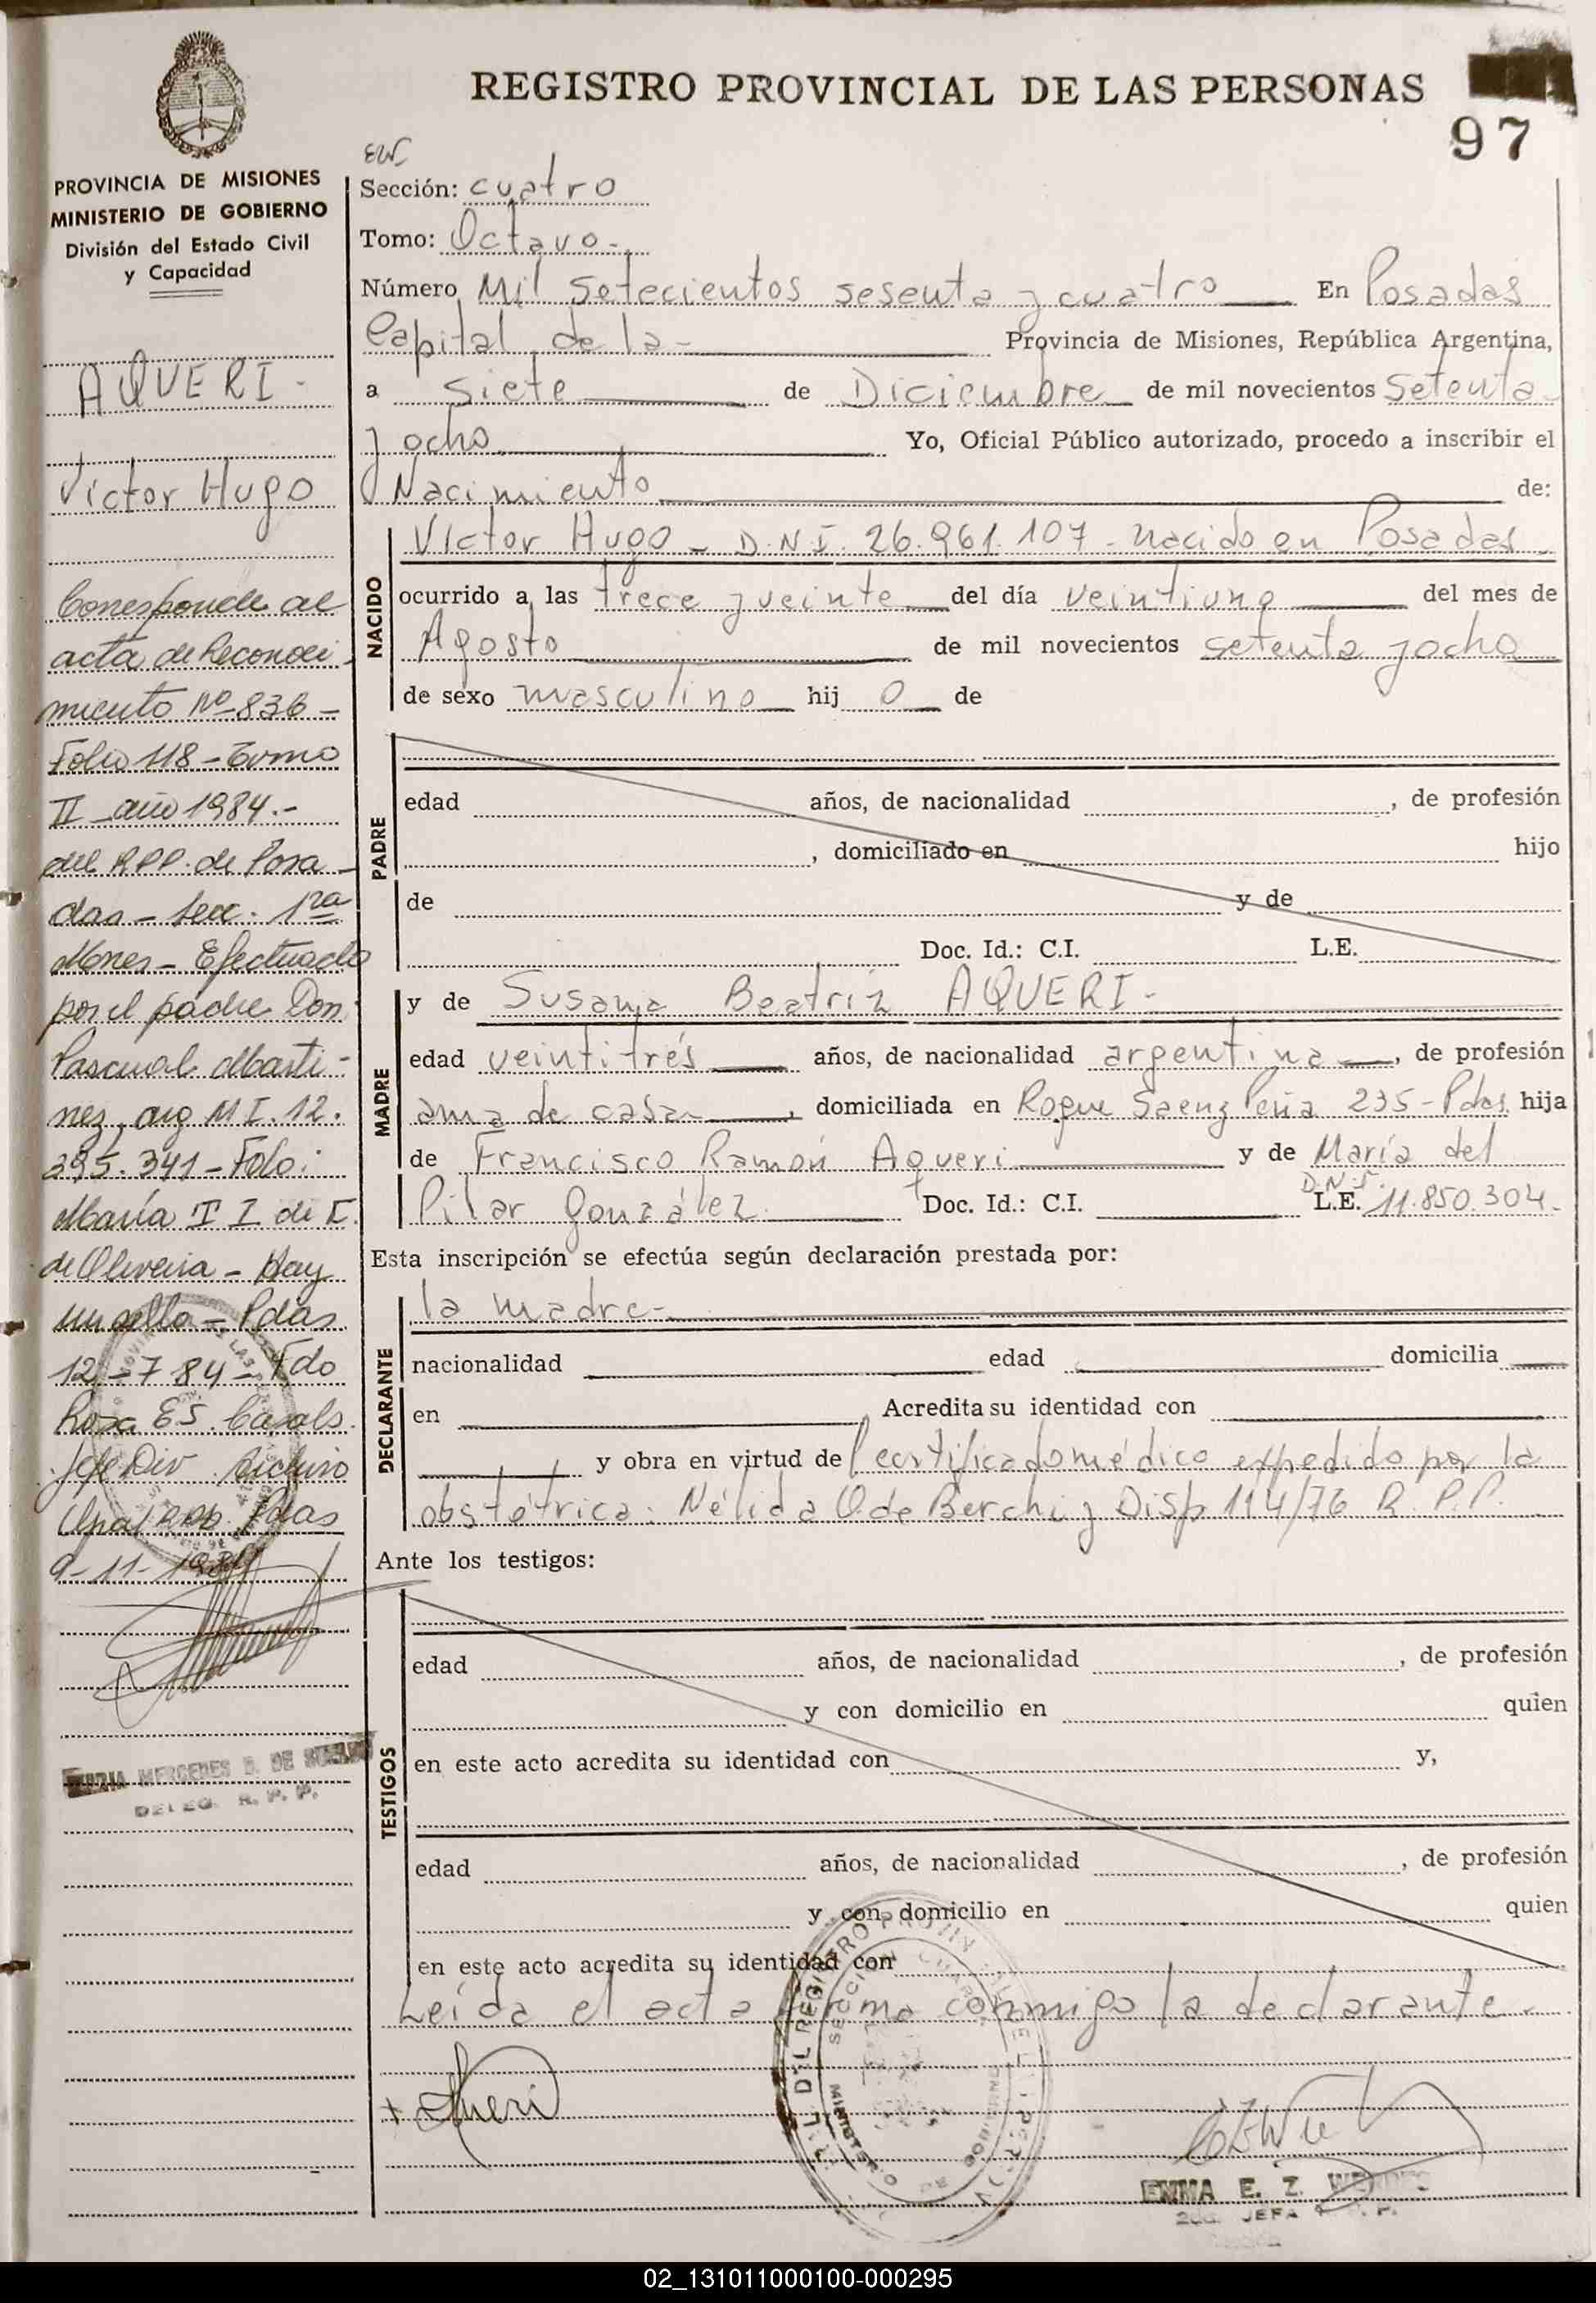 REGISTRO PROVINCIAL DE LAS PERSONAS
97
PROVINCIA DE MISIONES
MINISTERIO DE GOBIERNO
División del Estado Civil
y Capacidad
AQUERI -
Victor Hugo
Corresponde al
acta de Reconoci-
miento Nº 836 -
Folio 118 - Tomo
II año 1984.-
del R.P.P. de Posa-
das - Secc. 1ra
Mnes - Efectuado
por el padre Don
Pascual Marti-
nez, arg M I. 12.
395.341 - Fdo:
María T I de
de Oliveira - Hay
un sello - Pdas
12-7 84 - Fdo
Rosa E S. Casals.
Jefe Div Archivo
Gral RPP. Pdas
9-11-1984
MERCEDES D. DE
DELEG. R. P. P.
Sección: cuatro
Tomo: Octavo.-
Número Mil setecientos sesenta y cuatro En Posadas
Capital de la- Provincia de Misiones, República Argentina,
a siete de Diciembre de mil novecientos setenta
y ocho Yo, Oficial Público autorizado, procedo a inscribir el
Nacimiento de:
NACIDO
Victor Hugo - D.N.I. 26.961.107 - nacido en Posadas -
ocurrido a las trece y veinte del día veintiuno del mes de
Agosto de mil novecientos setenta y ocho
de sexo masculino hij o de
PADRE
edad años, de nacionalidad , de profesión
, domiciliado en hijo
de y de
Doc. Id.: C.I. L.E.
MADRE
y de Susana Beatriz AQUERI -
edad veintitrés años, de nacionalidad argentina , de profesión
ama de casa , domiciliada en Roque Saenz Peña 235 - Pdas hija
de Francisco Ramón Aqueri y de María del
Pilar González Doc. Id.: C.I. L.E. D.N.I. 11.850.304.
Esta inscripción se efectúa según declaración prestada por:
DECLARANTE
la madre-
nacionalidad edad domicilia
en Acredita su identidad con
y obra en virtud del certificado médico expedido por la
obstétrica: Nélida O. de Berchi y Disp 114/76 R.P.P.
Ante los testigos:
TESTIGOS
edad años, de nacionalidad , de profesión
y con domicilio en quien
en este acto acredita su identidad con y,
edad años, de nacionalidad , de profesión
y con domicilio en quien
en este acto acredita su identidad con
Leída el acta firma conmigo la declarante.
EMMA E. Z.
JEFA
02_131011000100-000295